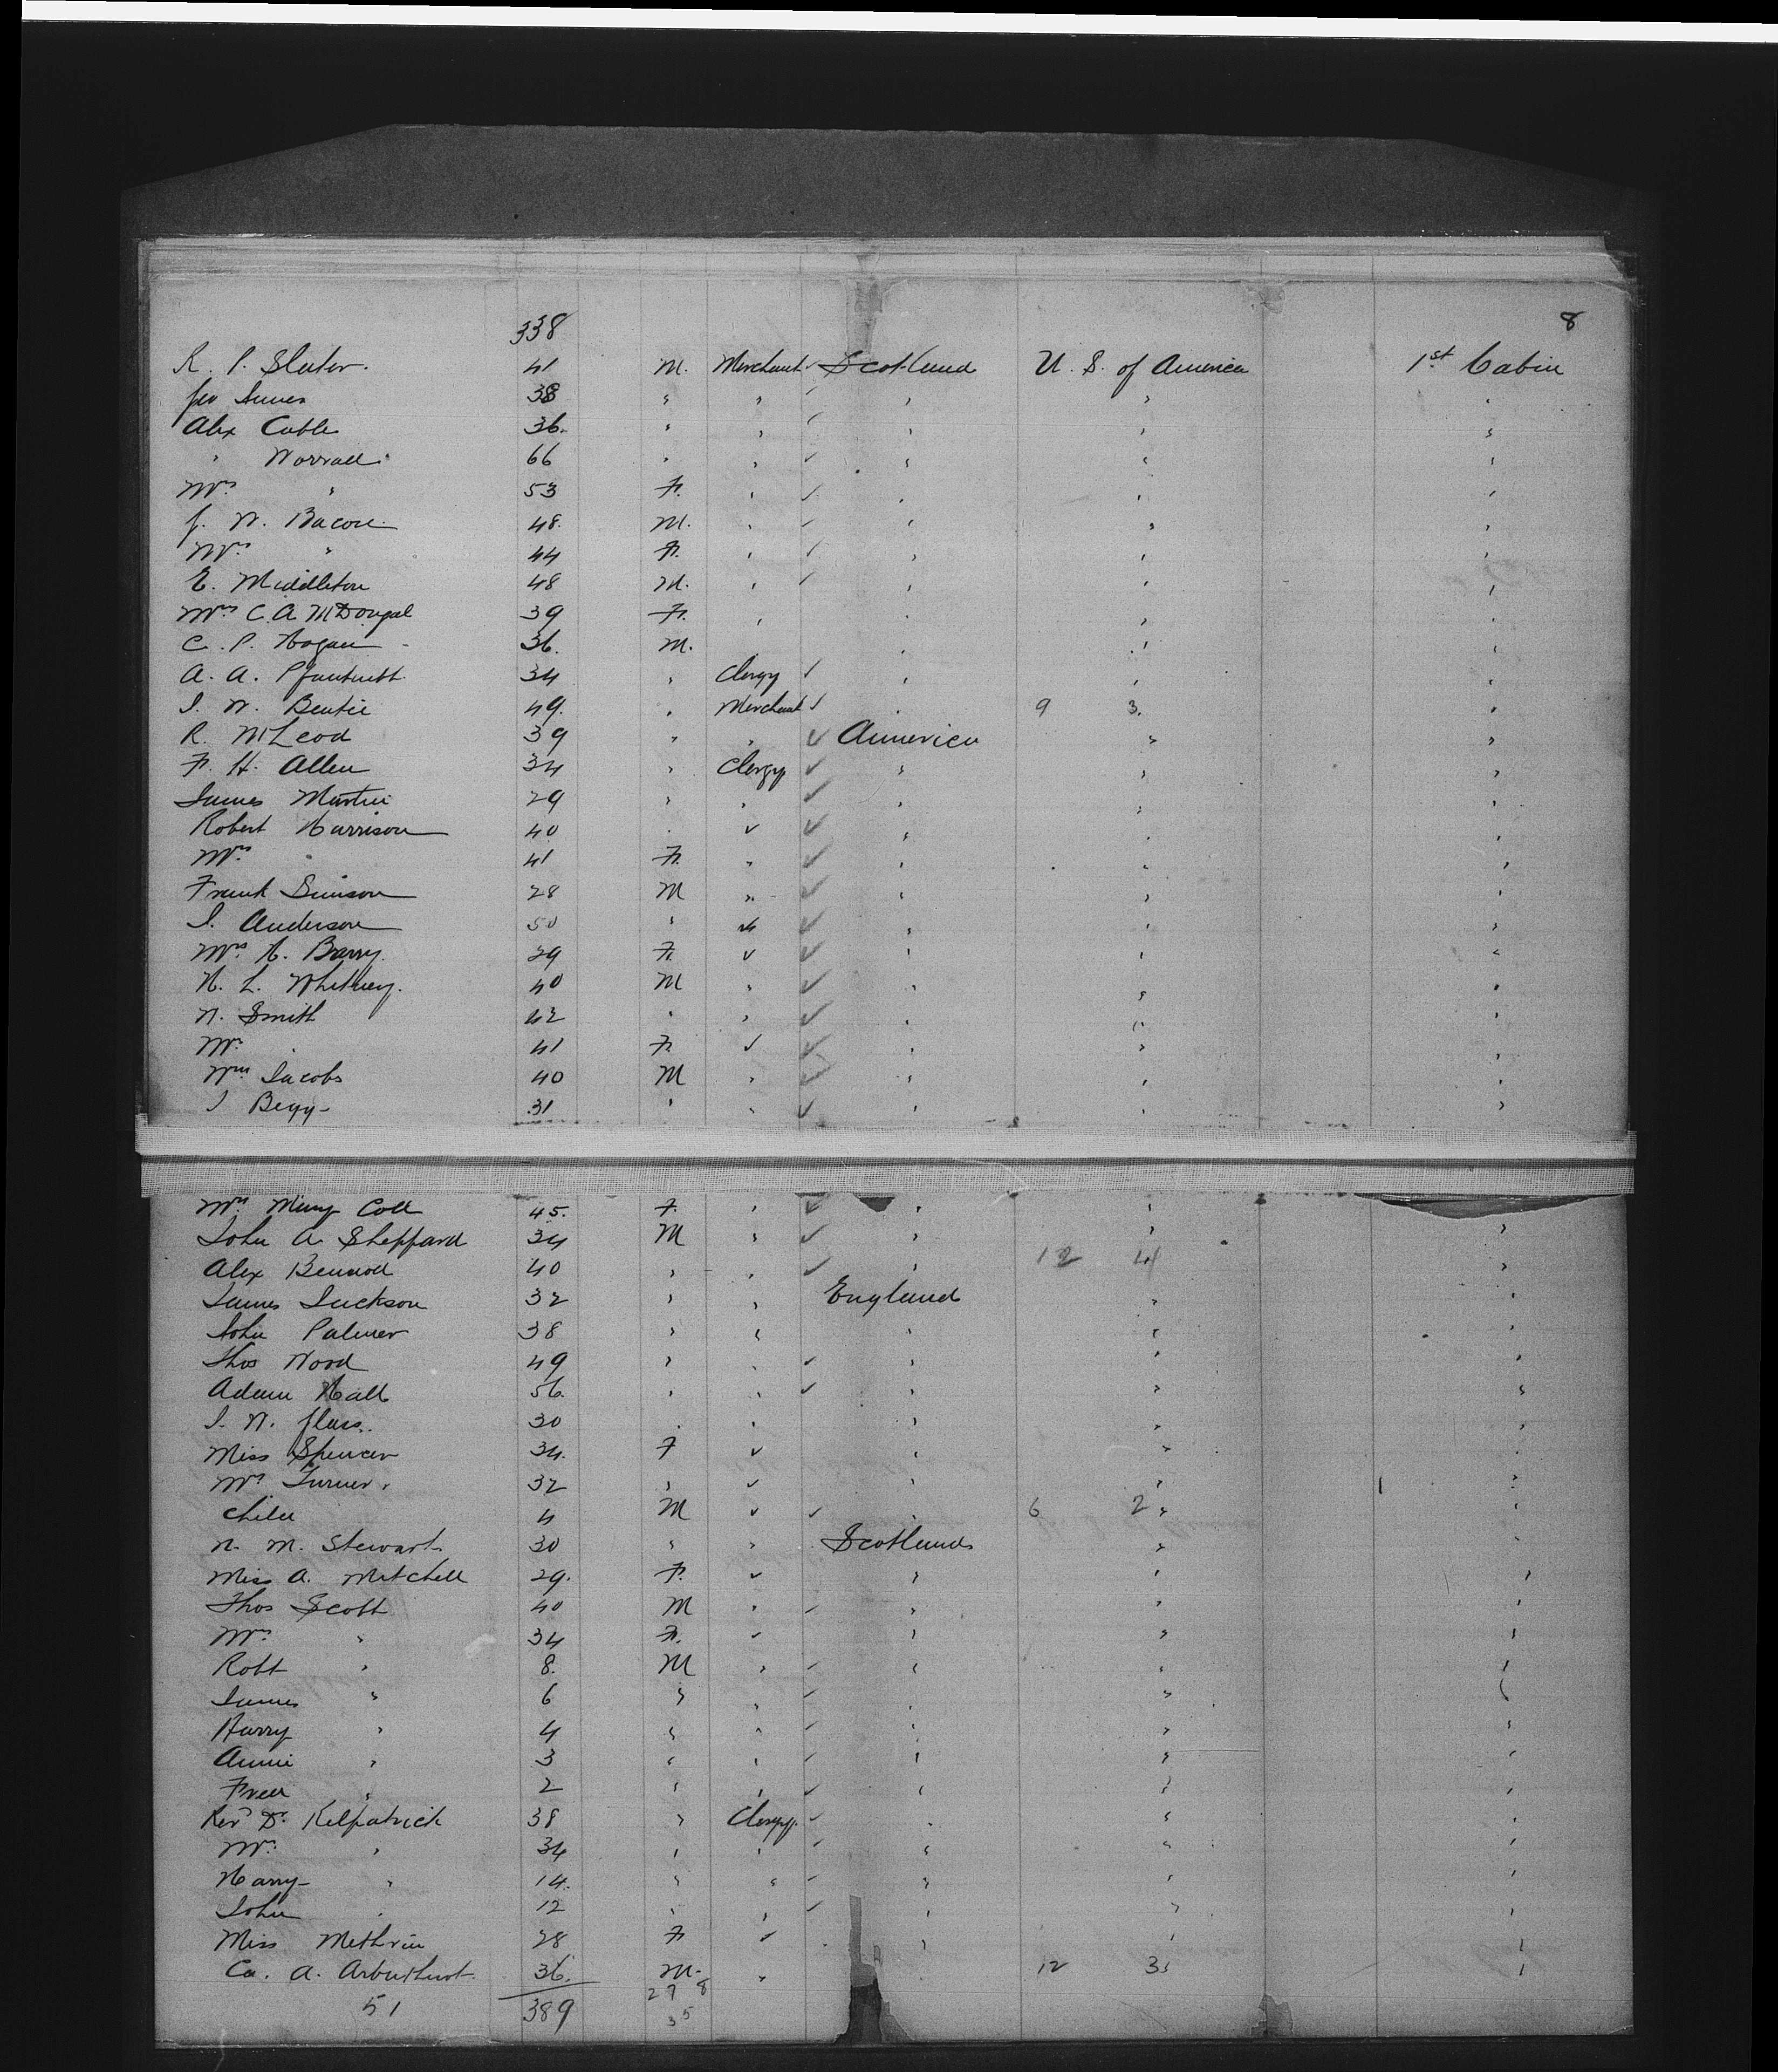 338 8
R. P. Slater. 41 M. Merchant ✓ Scotland U. S. of America 1st Cabin
Innes 38 " " ✓ " " "
Alex Cable 36. " " ✓ " " "
" Worrall. 66 " " ✓ " " "
Mrs " 53 F. " ✓ " " "
J. W. Bacon 48. M. " ✓ " " "
Mrs " 44 F. " ✓ " " "
E. Middleton 48 M. " ✓ " " "
Mrs C. A. McDougal 39 F. " " " "
C. P. Hogan 36. M. " " "
A. A. 34 " Clergy ✓ " " "
J. W. Beatie 49. " Merchant ✓ " 9 3. "
R. McLeod 39 " " ✓ America " "
F. H. Allen 34 " Clergy ✓ " " "
James Martin 29 " " ✓ " " "
Robert Harrison 40 " ✓ ✓ " " "
Mrs " 41 F. " ✓ " " "
Frank Simson 28 M " ✓ " " "
J. Anderson 50 " " ✓ " " "
Mrs H. Barry. 29 F. ✓ ✓ " " "
H. L. Whitney. 40 M " ✓ " " "
W. Smith 42 " " ✓ " " "
Mrs " 41 F. ✓ ✓ " " "
Wm Jacobs 40 M " ✓ " " "
J Begg 31 " " ✓ " " "
Mrs Mary Coll 45. F. " ✓ " "
John A. Sheppard 34 M " ✓ " " "
Alex Bennoll 40 " " ✓ " 12 4 "
James Jackson 32 " " England " "
John Palmer 38 " " " " "
Thos Wood 49 " " ✓ " " "
Adam Hall 56. " " ✓ " " "
J. W. 30 " " " " "
Miss Spencer 34. F ✓ " " "
Mrs Turner. 32 " ✓ " " 1 "
Child 4 M ✓ ✓ " 6 2 " "
W. M. Stewart 30 " " Scotland " "
Miss A. Mitchell 29. F. ✓ " " "
Thos Scott 40 M " ✓ " " "
Mrs " 34 F. ✓ " " "
Robt " 8. M " ✓ " " "
James " 6 " " ✓ " " "
Harry " 4 " " ✓ " " "
Annie " 3 " " ✓ " " "
Fred " 2 " " ✓ " " "
Rev Dr. Kilpatrick 38 " Clergy. ✓ " " "
Mrs " 34 " " ✓ " " "
Harry " 14. " " ✓ " " "
John " 12 " " ✓ " " "
Miss Methvin 28 F ✓ " " "
A. Arbuthnot 36. M. " 12 3 "
51 389 27 8
35